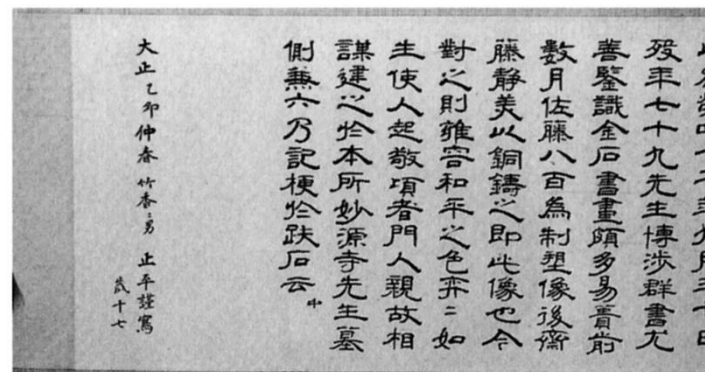 十二年九月三十日
歿年七十九先生博渉群書尤
善鑒識金石書畫頗多易簀前
數月佐藤八百為制塑像後齋
藤静美以銅鑄之即此像也今
對之則雍容和平之色弈〻如
生使人起敬頃者門人親故相
謀建之於本所妙源寺先生墓
側兼六乃記梗於趺石云 中
大正乙卯仲春 竹香二男 止平謹寫
歳十七